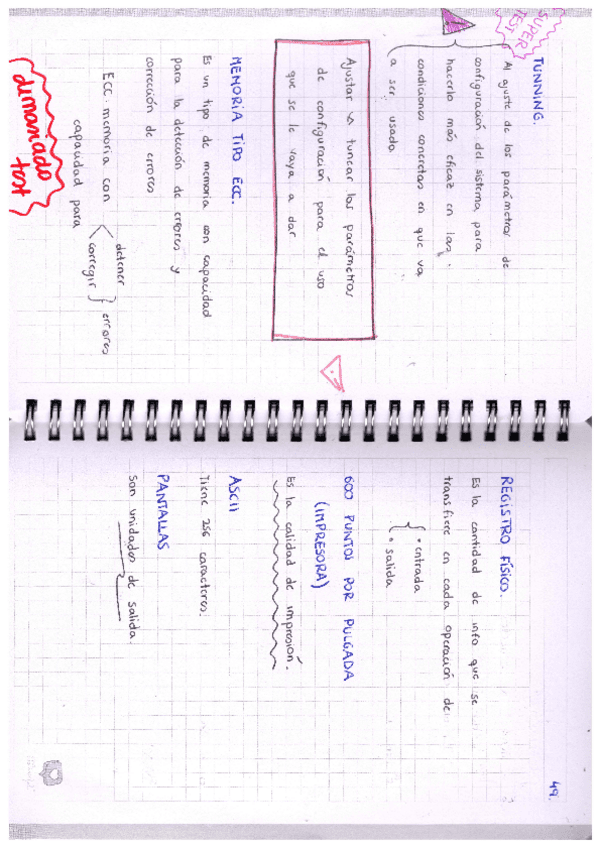 SUPER
TEST
TUNNING.
Al ajuste de los parámetros de
configuración del sistema para
hacerlo más eficaz en las
condiciones concretas en que va
a ser usado
Ajustar ↪ tunear los parámetros
de configuración para el uso
que se le vaya a dar
MEMORIA TIPO ECC.
Es un tipo de memoria con capacidad
para la detección de errores y
corrección de errores
ECC. memoria con
capacidad para
detener
corregir
errores
dimaniado
test
49.
REGISTRO FÍSICO.
Es la cantidad de info que se
transfiere en cada operación de
• entrada
• salida
600 PUNTOS POR PULGADA
(IMPRESORA)
Es la calidad de impresión.
ASCII
Tiene 256 caracteres.
PANTALLAS
Son unidades de salida.